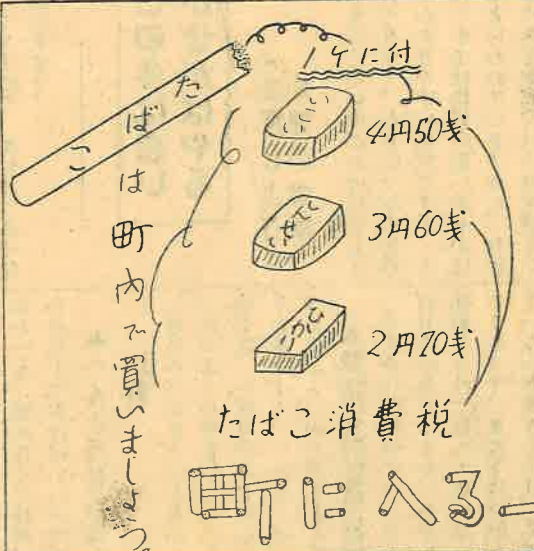 たばこ
は町内で買いましょう。
1ケに付
いこい
4円50銭
しんせい
3円60銭
2円70銭
たばこ消費税
町に入る―